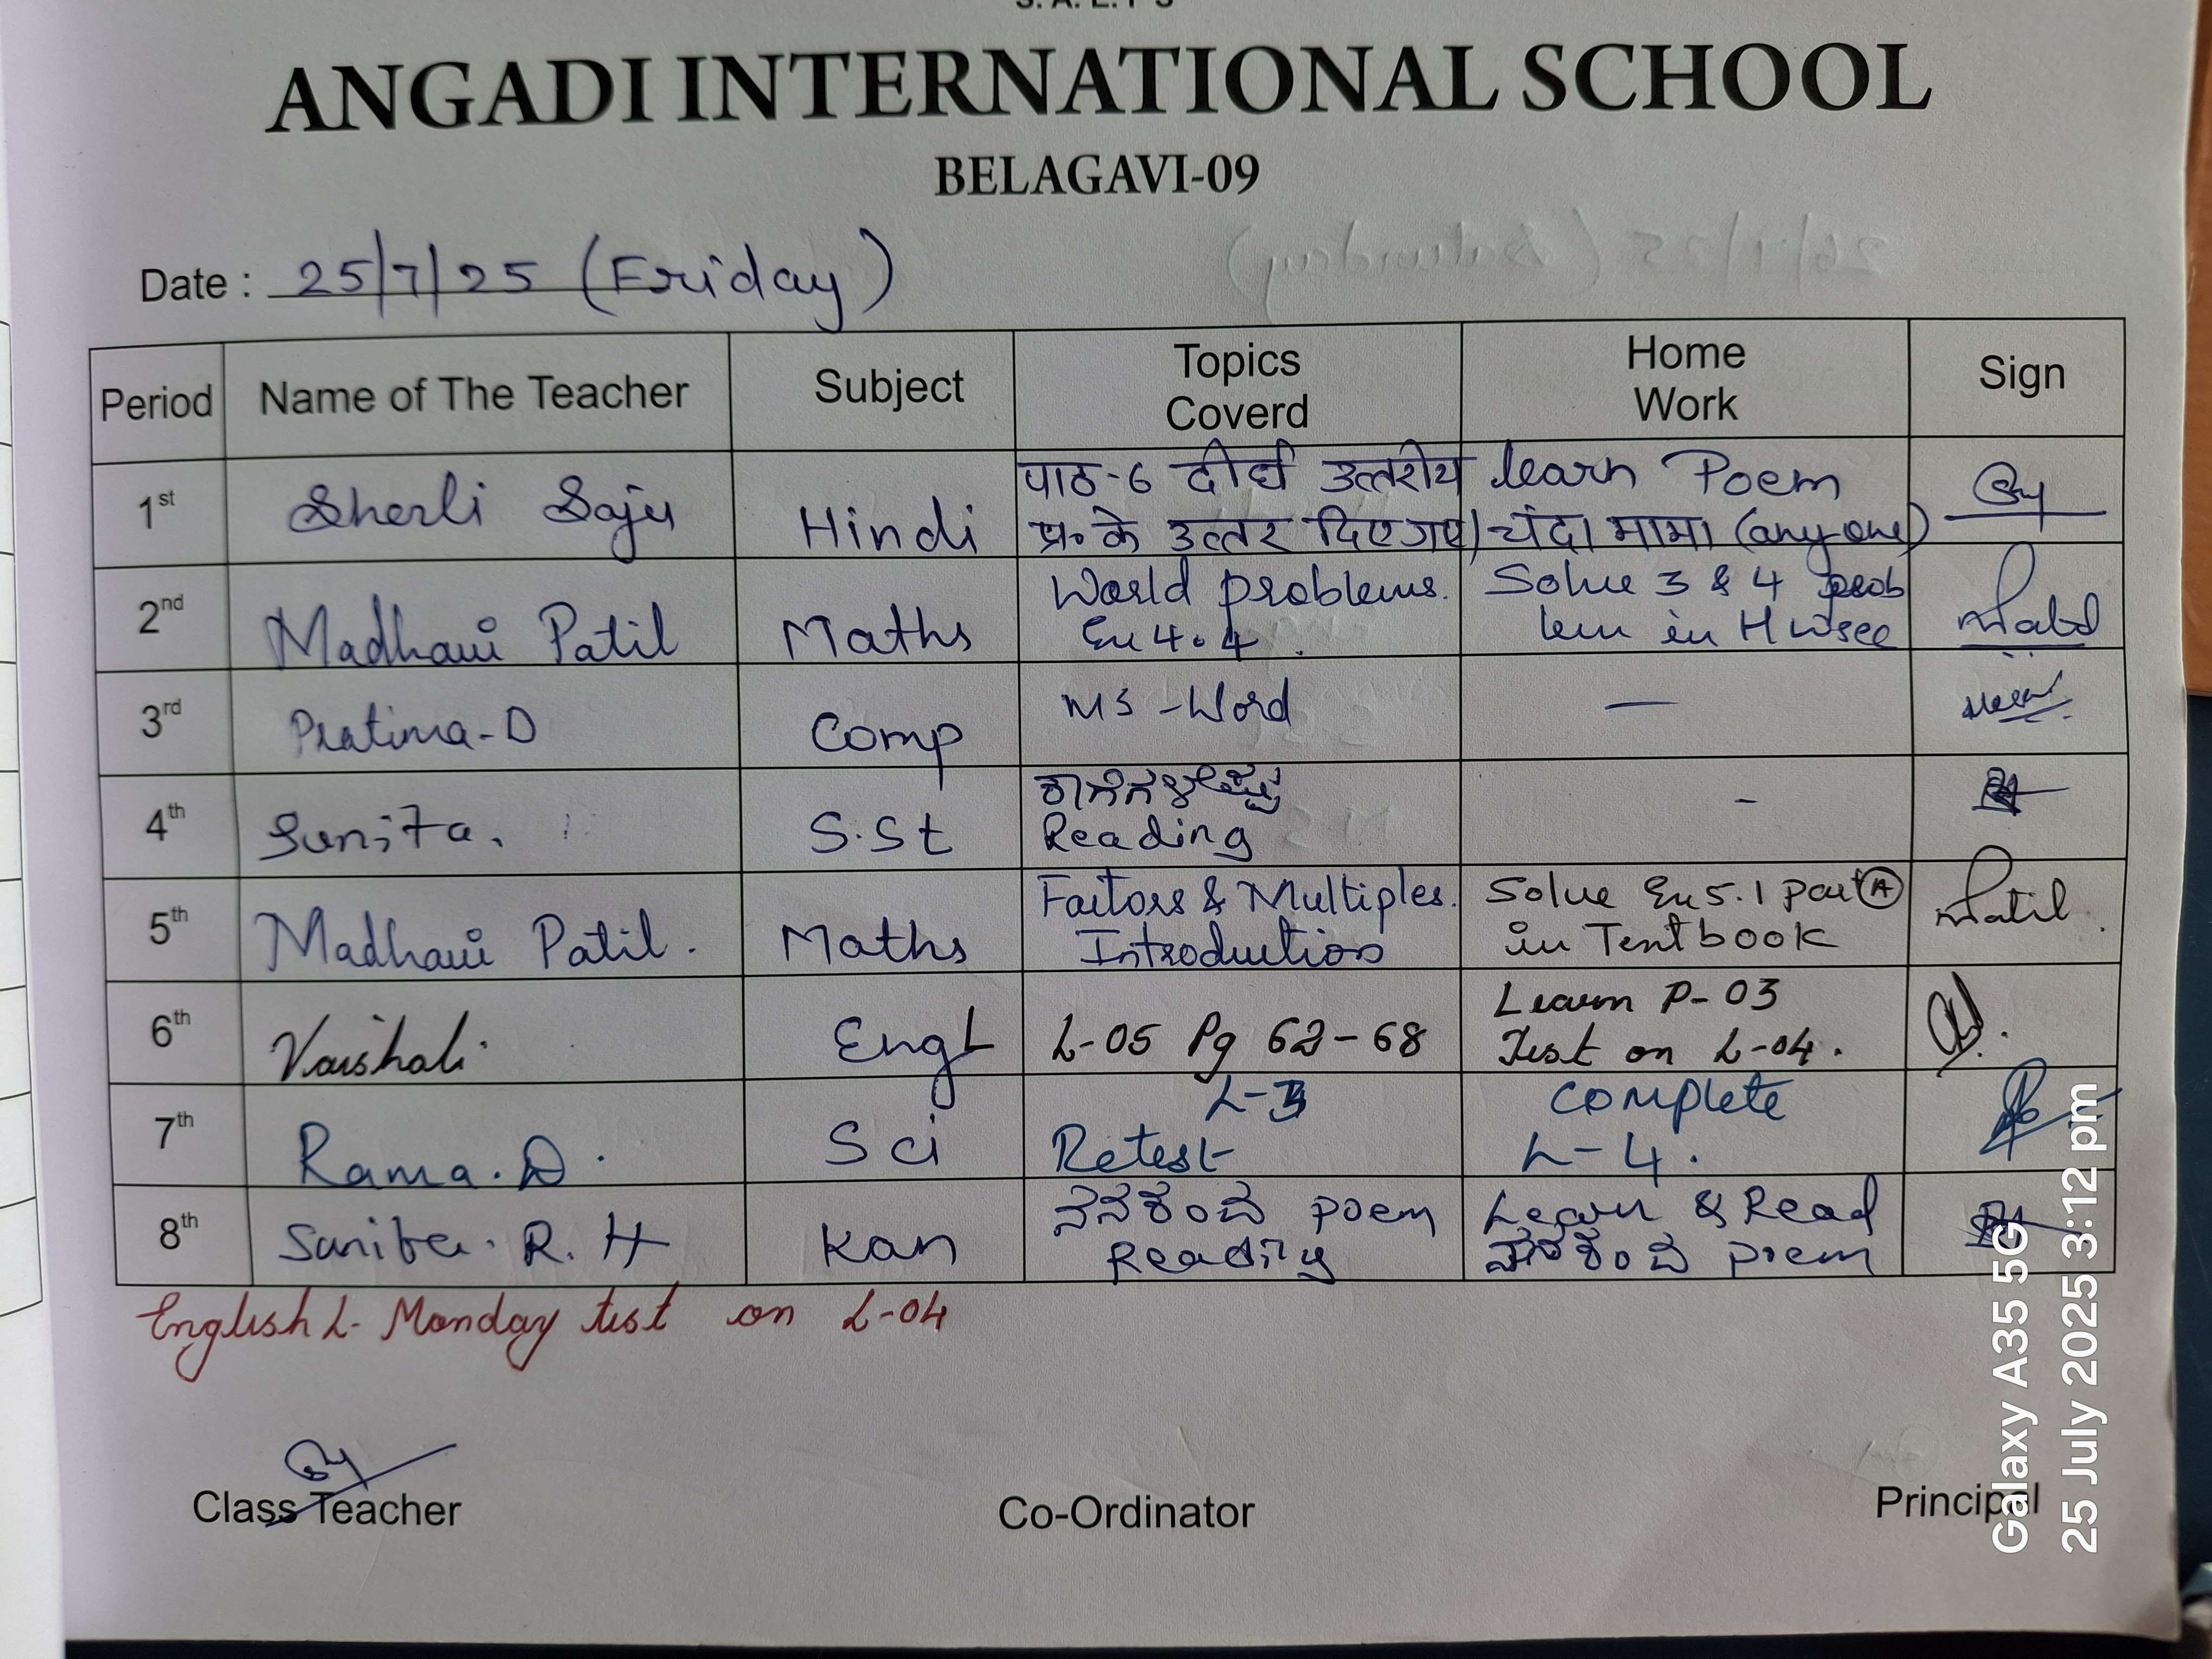 ANGADI INTERNATIONAL SCHOOL
BELAGAVI-09
Date : 25/7/25 (Friday)
Period Name of The Teacher Subject Topics Coverd Home Work Sign
1st Sherli Saju Hindi पाठ-6 दीर्घ उत्तरीय learn Poem
प्र॰ के उत्तर दिए गए। चंदा मामा (any one)
2nd Madhavi Patil Maths World problems. Solve 3 & 4 prob
Ex 4.4. lem in H
3rd Pratima-D Comp MS-Word —
4th Sunita. S.St -
Reading
5th Madhavi Patil. Maths Factors & Multiples. Solve Ex 5.1 part (A) Patil.
Introduction in Textbook
6th Vaishali. Engl L-05 Pg 62-68 Learn P-03
Test on L-04.
7th Rama.D. Sci L-3 Complete
Retest L-4.
8th Sunita. R. H Kan poem Learn & Read
Reading poem
English L. Monday test on L-04
Class Teacher Co-Ordinator Principal
Galaxy A35 5G
25 July 2025 3:12 pm